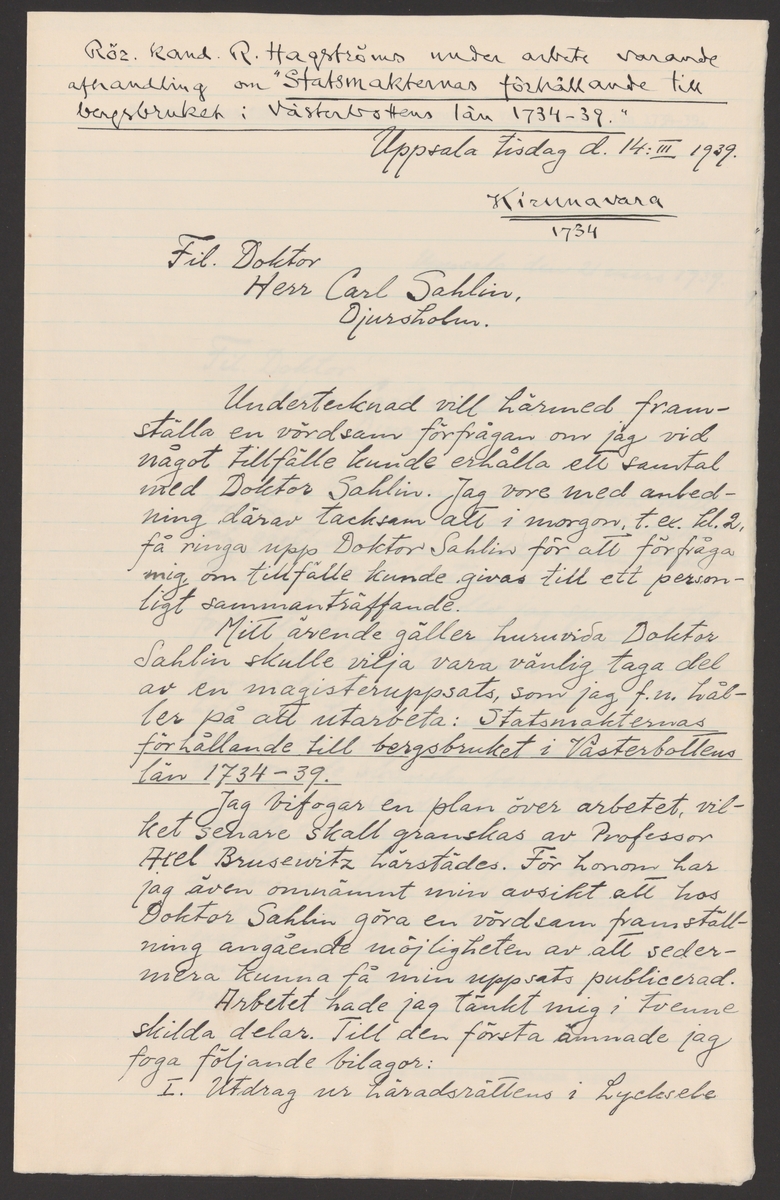 Rör. kand. R. Hagströms under arbete varande
afhandling om "Statsmakternas förhållande till
bergsbruket i Västerbottens län 1734-39."
Uppsala tisdag d. 14:III 1939.
Kirunavara
1734
Fil. Doktor
Herr Carl Sahlin,
Djursholm.
Undertecknad vill härmed fram-
ställa en vördsam förfrågan om jag vid
något tillfälle kunde erhålla ett samtal
med Doktor Sahlin. Jag vore med anled-
ning därav tacksam att i morgon, t. ex. kl. 2,
få ringa upp Doktor Sahlin för att förfråga
mig, om tillfälle kunde givas till ett person-
ligt sammanträffande.
Mitt ärende gäller huruvida Doktor
Sahlin skulle vilja vara vänlig taga del
av en magisteruppsats, som jag f.n. hål-
ler på att utarbeta: Statsmakternas
förhållande till bergsbruket i Västerbottens
län 1734-39.
Jag bifogar en plan över arbetet, vil-
ket senare skall granskas av Professor
Axel Brusewitz härstädes. För honom har
jag även omnämnt min avsikt att hos
Doktor Sahlin göra en vördsam framställ-
ning angående möjligheten av att seder-
mera kunna få min uppsats publicerad.
Arbetet hade jag tänkt mig i tvenne
skilda delar. Till den första ämnade jag
foga följande bilagor:
I. Utdrag ur häradsrättens i Lycksele